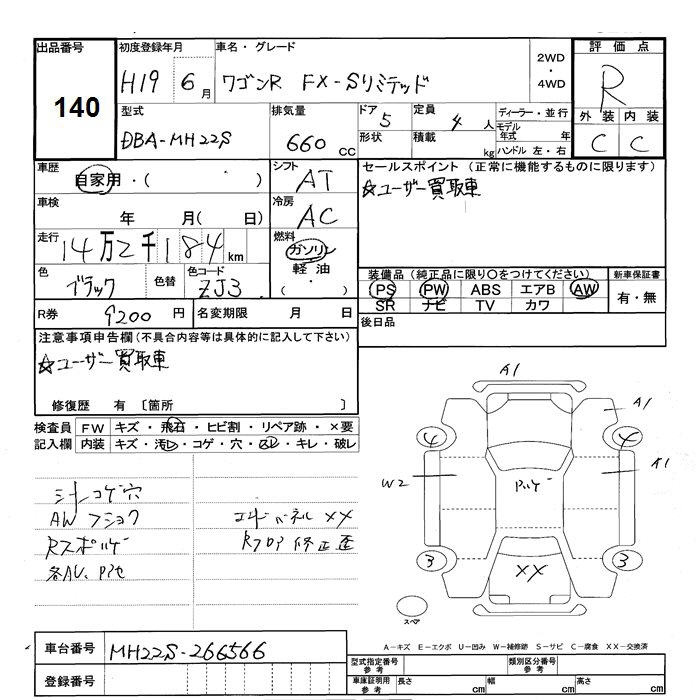 出品番号 初度登録年月 車名・グレード 2WD 評価点
140 H19 6月 ワゴンR FX-Sリミテッド ・ 4WD R
型式 排気量 ドア 定員 ディーラー・並行 外装 内装
DBA-MH22S 660 cc 5 4人 モデル年式 年 C C
形状 積載 kg ハンドル 左・右
車歴 自家用・( ・ ) シフト AT セールスポイント (正常に機能するものに限ります)
☆ユーザー買取車
車検 年 月( 日) 冷房 AC
走行 14万2千184km 燃料 ガソリン
軽油
( ・ )
色 ブラック 色替 色コード ZJ3
装備品 (純正品に限り○をつけてください) 新車保証書
PS PW ABS エアB AW 有・無
SR ナビ TV カワ
R券 9200円 名変期限 月 日 後日品
注意事項申告欄 (不具合内容等は具体的に記入して下さい)
☆ユーザー買取車
修復歴 有 〔箇所 〕
検査員 FW キズ・飛石・ヒビ割・リペア跡・×要
記入欄 内装 キズ・汚レ・コゲ・穴・スレ・キレ・破レ
シートコゲ穴
AW フショク
エンドパネル XX
Rフロア 修正歪
A1
A1
4 4
W2 A1
3 3
XX
スペア
A-キズ E-エクボ U-凹み W-補修跡 S-サビ C-腐食 XX-交換済
車台番号 MH22S-266566
登録番号
型式指定番号 参考 類別区分番号 参考
車庫証明用 参考 長さ cm 幅 cm 高さ cm